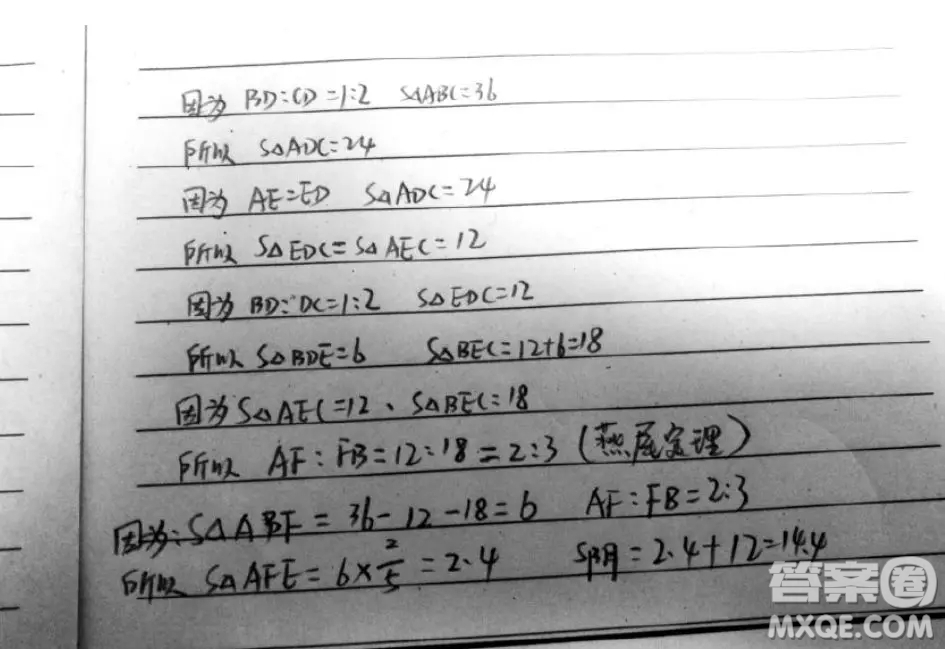 因为 BD:CD=1:2 S△ABC=36
所以 S△ADC=24
因为 AE=ED S△ADC=24
所以 S△EDC=S△AEC=12
因为 BD:DC=1:2 S△EDC=12
所以 S△BDE=6 S△BEC=12+6=18
因为 S△AEC=12、S△BEC=18
所以 AF:FB=12:18=2:3(燕尾定理)
因为:S△ABF=36-12-18=6 AF:FB=2:3
所以 S△AFE=6×2/5=2.4 S阴=2.4+12=14.4
答案圈
MXQE.COM